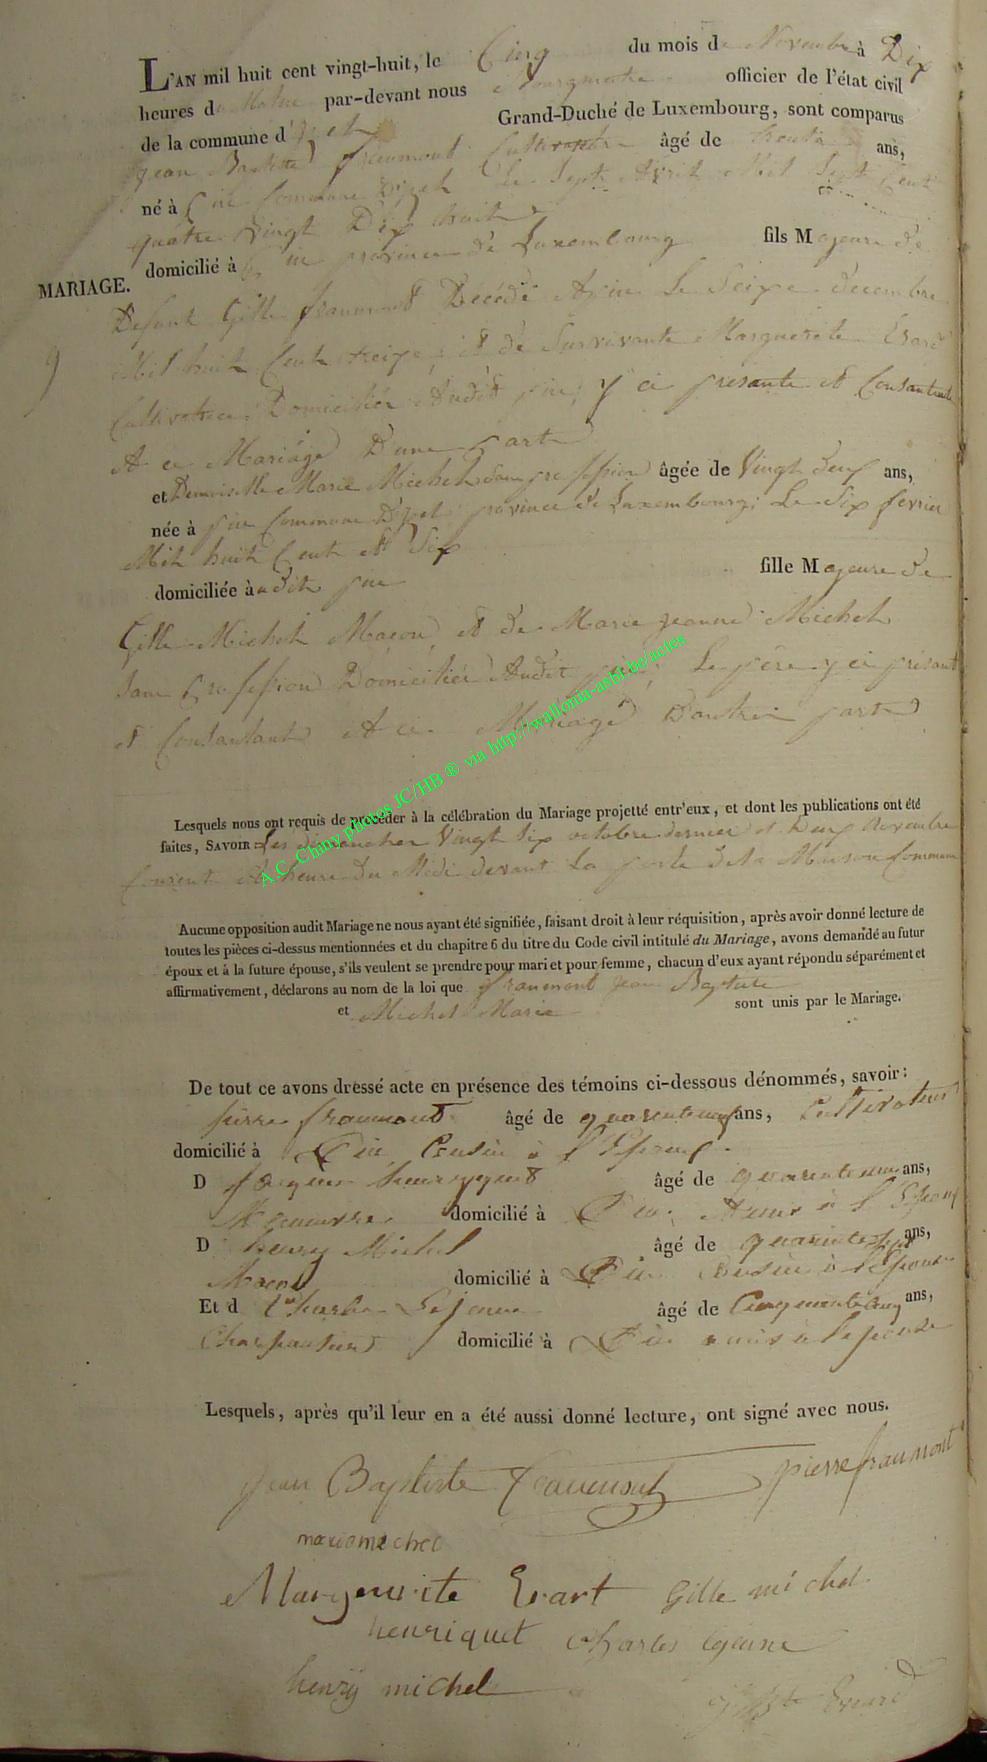 L'AN mil huit cent vingt-huit, le Cinq du mois de Novembre à Dix
heures du Matin par-devant nous Bourgmestre officier de l'état civil
de la commune d'Izel Grand-Duché de Luxembourg, sont comparus
Jean Baptiste fraumont Cultivateur âgé de trente ans,
né à Pin Commune Dizel Le Sept Avril Mil Sept Cent
quatre Vingt Dix huit
domicilié à Pin province de Luxembourg fils Majeure de
MARIAGE.
9
Defunt Gille fraumont Décédé A pin Le Seize decembre
Mil huit Cent treize, et de Survivante Marguerite Erard
Cultivatrice Domiciliée Audit pin, y ci présante et Consantante
A ce Mariage D'une part
et Demoiselle Marie Michel Sans profession âgée de Vingt deux ans,
née à pin Commune Dizel province de Luxembourg, Le Six fevrier
Mil huit Cent et Six
domiciliée audit pin fille Majeure de
Gille Michel Maçon, et de Marie jeanne Michel
Sans profession Domiciliée Audit pin, Le père y ci présant
et Consantant A ce Mariage D'autre part
Lesquels nous ont requis de procéder à la célébration du Mariage projetté entr'eux, et dont les publications ont été
faites, SAVOIR: Les dimanches Vingt Six octobre dernier et Deux Novembre
Courent heure du Midi devant La porte de la Maison Commune
Aucune opposition audit Mariage ne nous ayant été signifiée, faisant droit à leur réquisition, après avoir donné lecture de
toutes les pièces ci-dessus mentionnées et du chapitre 6 du titre du Code civil intitulé du Mariage, avons demandé au futur
époux et à la future épouse, s'ils veulent se prendre pour mari et pour femme, chacun d'eux ayant répondu séparément et
affirmativement, déclarons au nom de la loi que fraumont jean Baptiste
et Michel Marie sont unis par le Mariage.
De tout ce avons dressé acte en présence des témoins ci-dessous dénommés, savoir:
pierre fraumont âgé de quarenteneuf ans, Cultivateur
domicilié à Pin Cousin à l'Epoux.
D Henriquet âgé de ans,
domicilié à Pin, Amis à l'Epoux
D henry Michel âgé de quarantesept ans,
Maçon domicilié à Pin Cousin à l'Epouse
Et d Charles Lejeune âgé de Cinquantecinq ans,
Charpantier domicilié à Pin amis à l'epouse
Lesquels, après qu'il leur en a été aussi donné lecture, ont signé avec nous.
Jean Baptiste fraumont pierre fraumont
marie michel
Marguerite Erart Gille michel
henriquet Charles lejeune
henry michel
Erard
A.C. Chiny photos JC/HB ® via http://wallonia-asbl.be/actes